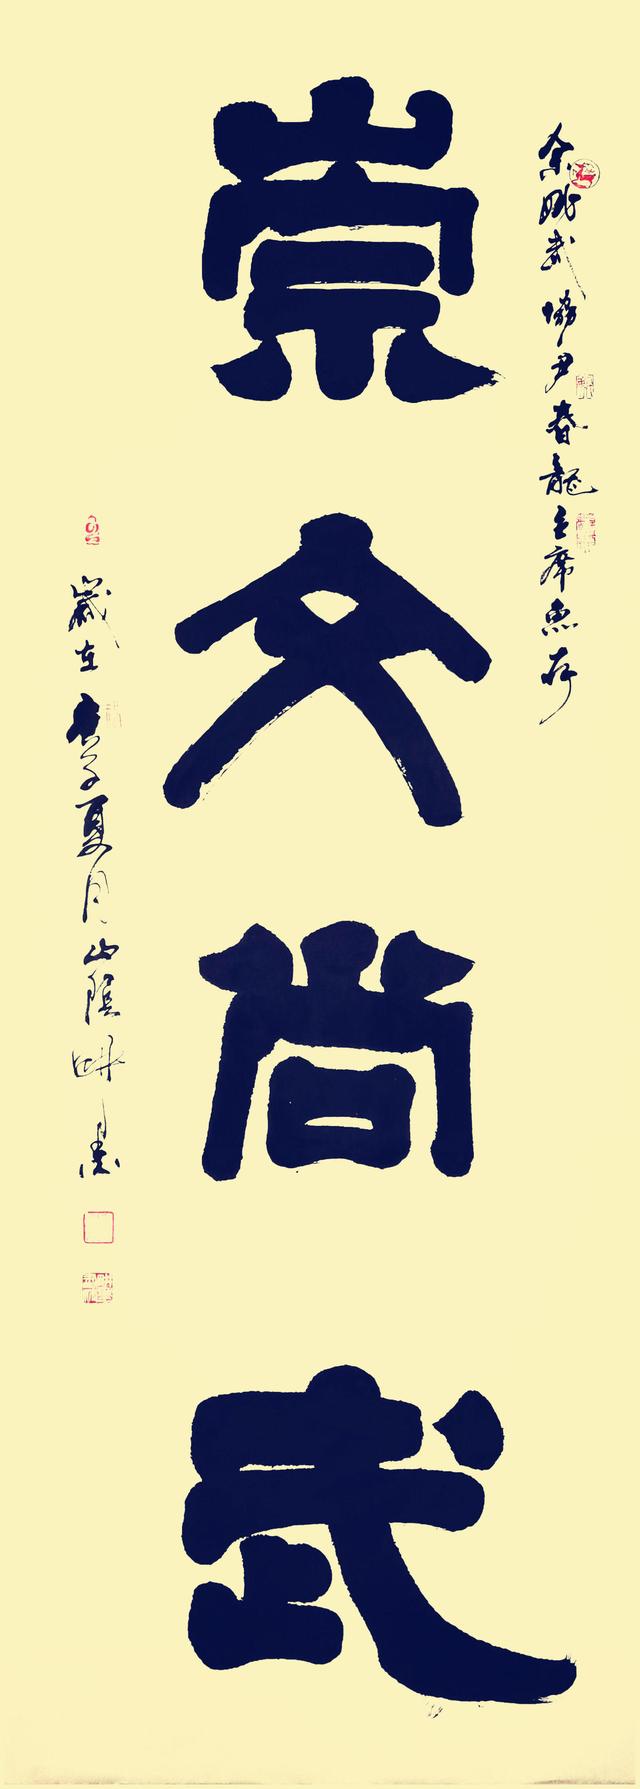 余姚武協尹春龍主席惠存
崇文尚武
歲在庚子夏月山陰